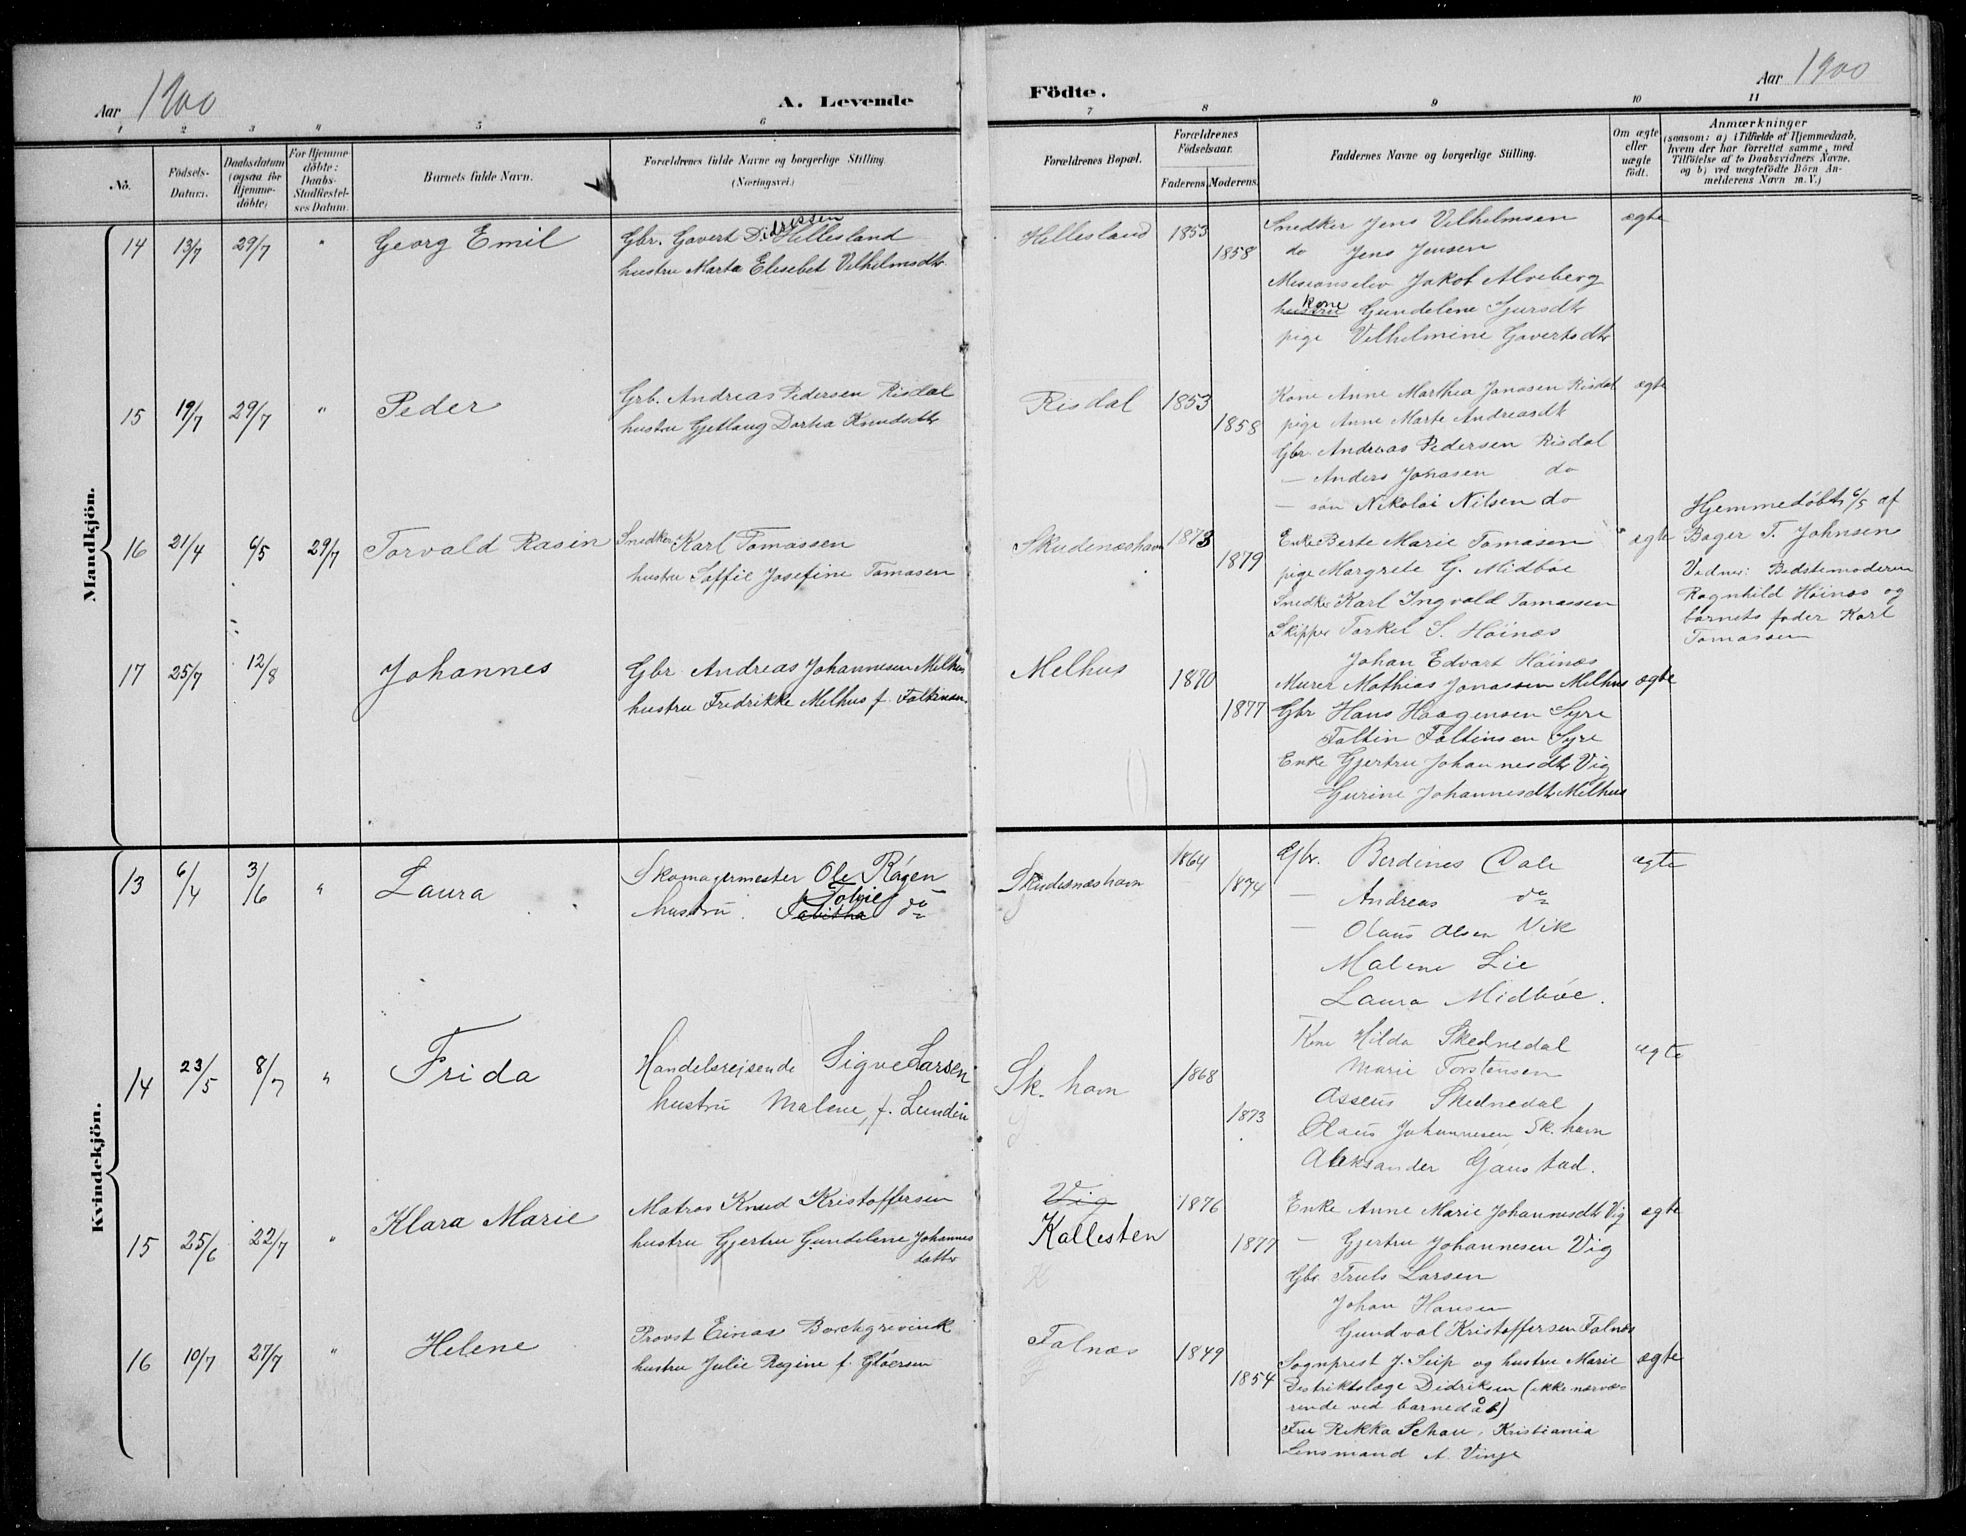 Aar 1900
A. Levende
Födte.
Aar 1900
1 2 3 4 5 6 7 8 9 10 11
No.
Födsels-
Datum.
Daabsdatum
(ogsaa for
Hjemme-
döbte)
For Hjemme-
döbte:
Daabs-
Stadfæstel-
ses Datum.
Barnets fulde Navn.
Forældrenes fulde Navne og borgerlige Stilling.
(Næringsvei.)
Forældrenes Bopæl.
Forældrenes
Födselsaar.
Faderens. Moderens.
Faddernes Navne og borgerlige Stilling.
Om ægte
eller
uægte
født.
Anmærkninger
(saasom: a) i Tilfælde af Hjemmedaab,
hvem der har forrettet samme, med
Tilföielse af to Daabsvidners Navne.
og b) ved uægtefödte Börn An-
melderens Navn m. V.)
Mandkjön.
14 13/7 29/7 " Georg Emil
Gbr. Gavert Didriksen Hillesland
hustru Marta Elisebet Vilhelmsdtr.
Hillesland 1853 1858
Snedker Jens Vilhelmsen
do Jens Jensen
Missionselev Jakob Alveberg
hustru kone Gundelene Sjursdtr
pige Vilhelmine Gavertsdtr
ægte
15 19/7 29/7 " Peder
Grb. Andreas Pedersen Risdal
hustru Gjetlaug Dortea Knudsdtr
Risdal 1853 1858
Kone Anne Marthea Jonasen Risdal
pige Anne Marte Andreasdt
Gbr. Andreas Pedersen Risdal
— Anders Jonasen do
— søn Nikolai Nilsen do
ægte
16 21/4 6/5 29/7 Torvald Rasin
Snedker Karl Tomassen
hustru Soffie Josefine Tomasen
Skudenæshavn 1873 1879
Enke Berte Marie Tomasen
pige Margrete G. Midböe
Snedker Karl Ingvald Tomassen
Skipper Torkel S. Höinæs
Johan Edvart Höinæs
ægte
Hjemmedöbt 6/5 af
Bager T. Johnsen
Vidner: Bedstemoderen
Ragnhild Höinæs og
barnets fader Karl
Tomassen
17 25/7 12/8 Johannes
Gbr Andreas Johannesen Melhus
hustru Fredrikke Melhus f. Faltinsen.
Melhus 1870 1877
Murer Mathias Jonassen Melhus
Gbr Hans Haagensen Syre
Faltin Faltinsen Syre
Enke Gjertru Johannesdtr Vig
Gurine Johannesdtr Melhus
ægte
Kvindekjön.
13 6/4 3/6 " Laura
Skomagermester Ole Rögen
hustru. Tabitha do
Skudesnæshavn 1864 1874
Gbr. Berdines Dale
— Andreas do
— Olaus Olsen Vik
Malene Lie
Laura Midböe.
ægte
14 23/5 8/7 " Frida
Handelsrejsende Sigve Larsen
hustru Malene, f. Lundin
Sk. havn 1868 1873
Kone Hilda Skednedal
Marie Torstensen
Asseus Skednedal
Olaus Johannesen, Sk. havn
Aleksander Gaustad.
ægte
15 25/6 22/7 " Klara Marie
Matros Knud Kristoffersen
hustru Gjertru Gundelene Johannes
datter
Vig
Kallesten 1876 1877
Enke Anne Marie Johannesdtr Vig
— Gjertru Johannesen Vig
Gbr Truls Larsen
Johan Hansen
Gundval Kristoffersen Falnæs
ægte
16 10/7 27/7 " Helene
Provst Einar Borchgrevink
hustru Julie Regine f. Glöersen
Falnæs 1849 1854
Sognprest J. Seip og hustru Marie
Destriktslæge Didriksen (ikke nærvæ-
rende ved barnedåb)
Fru Rikka Schau, Kristiania
Lensmand A. Vinje
ægte